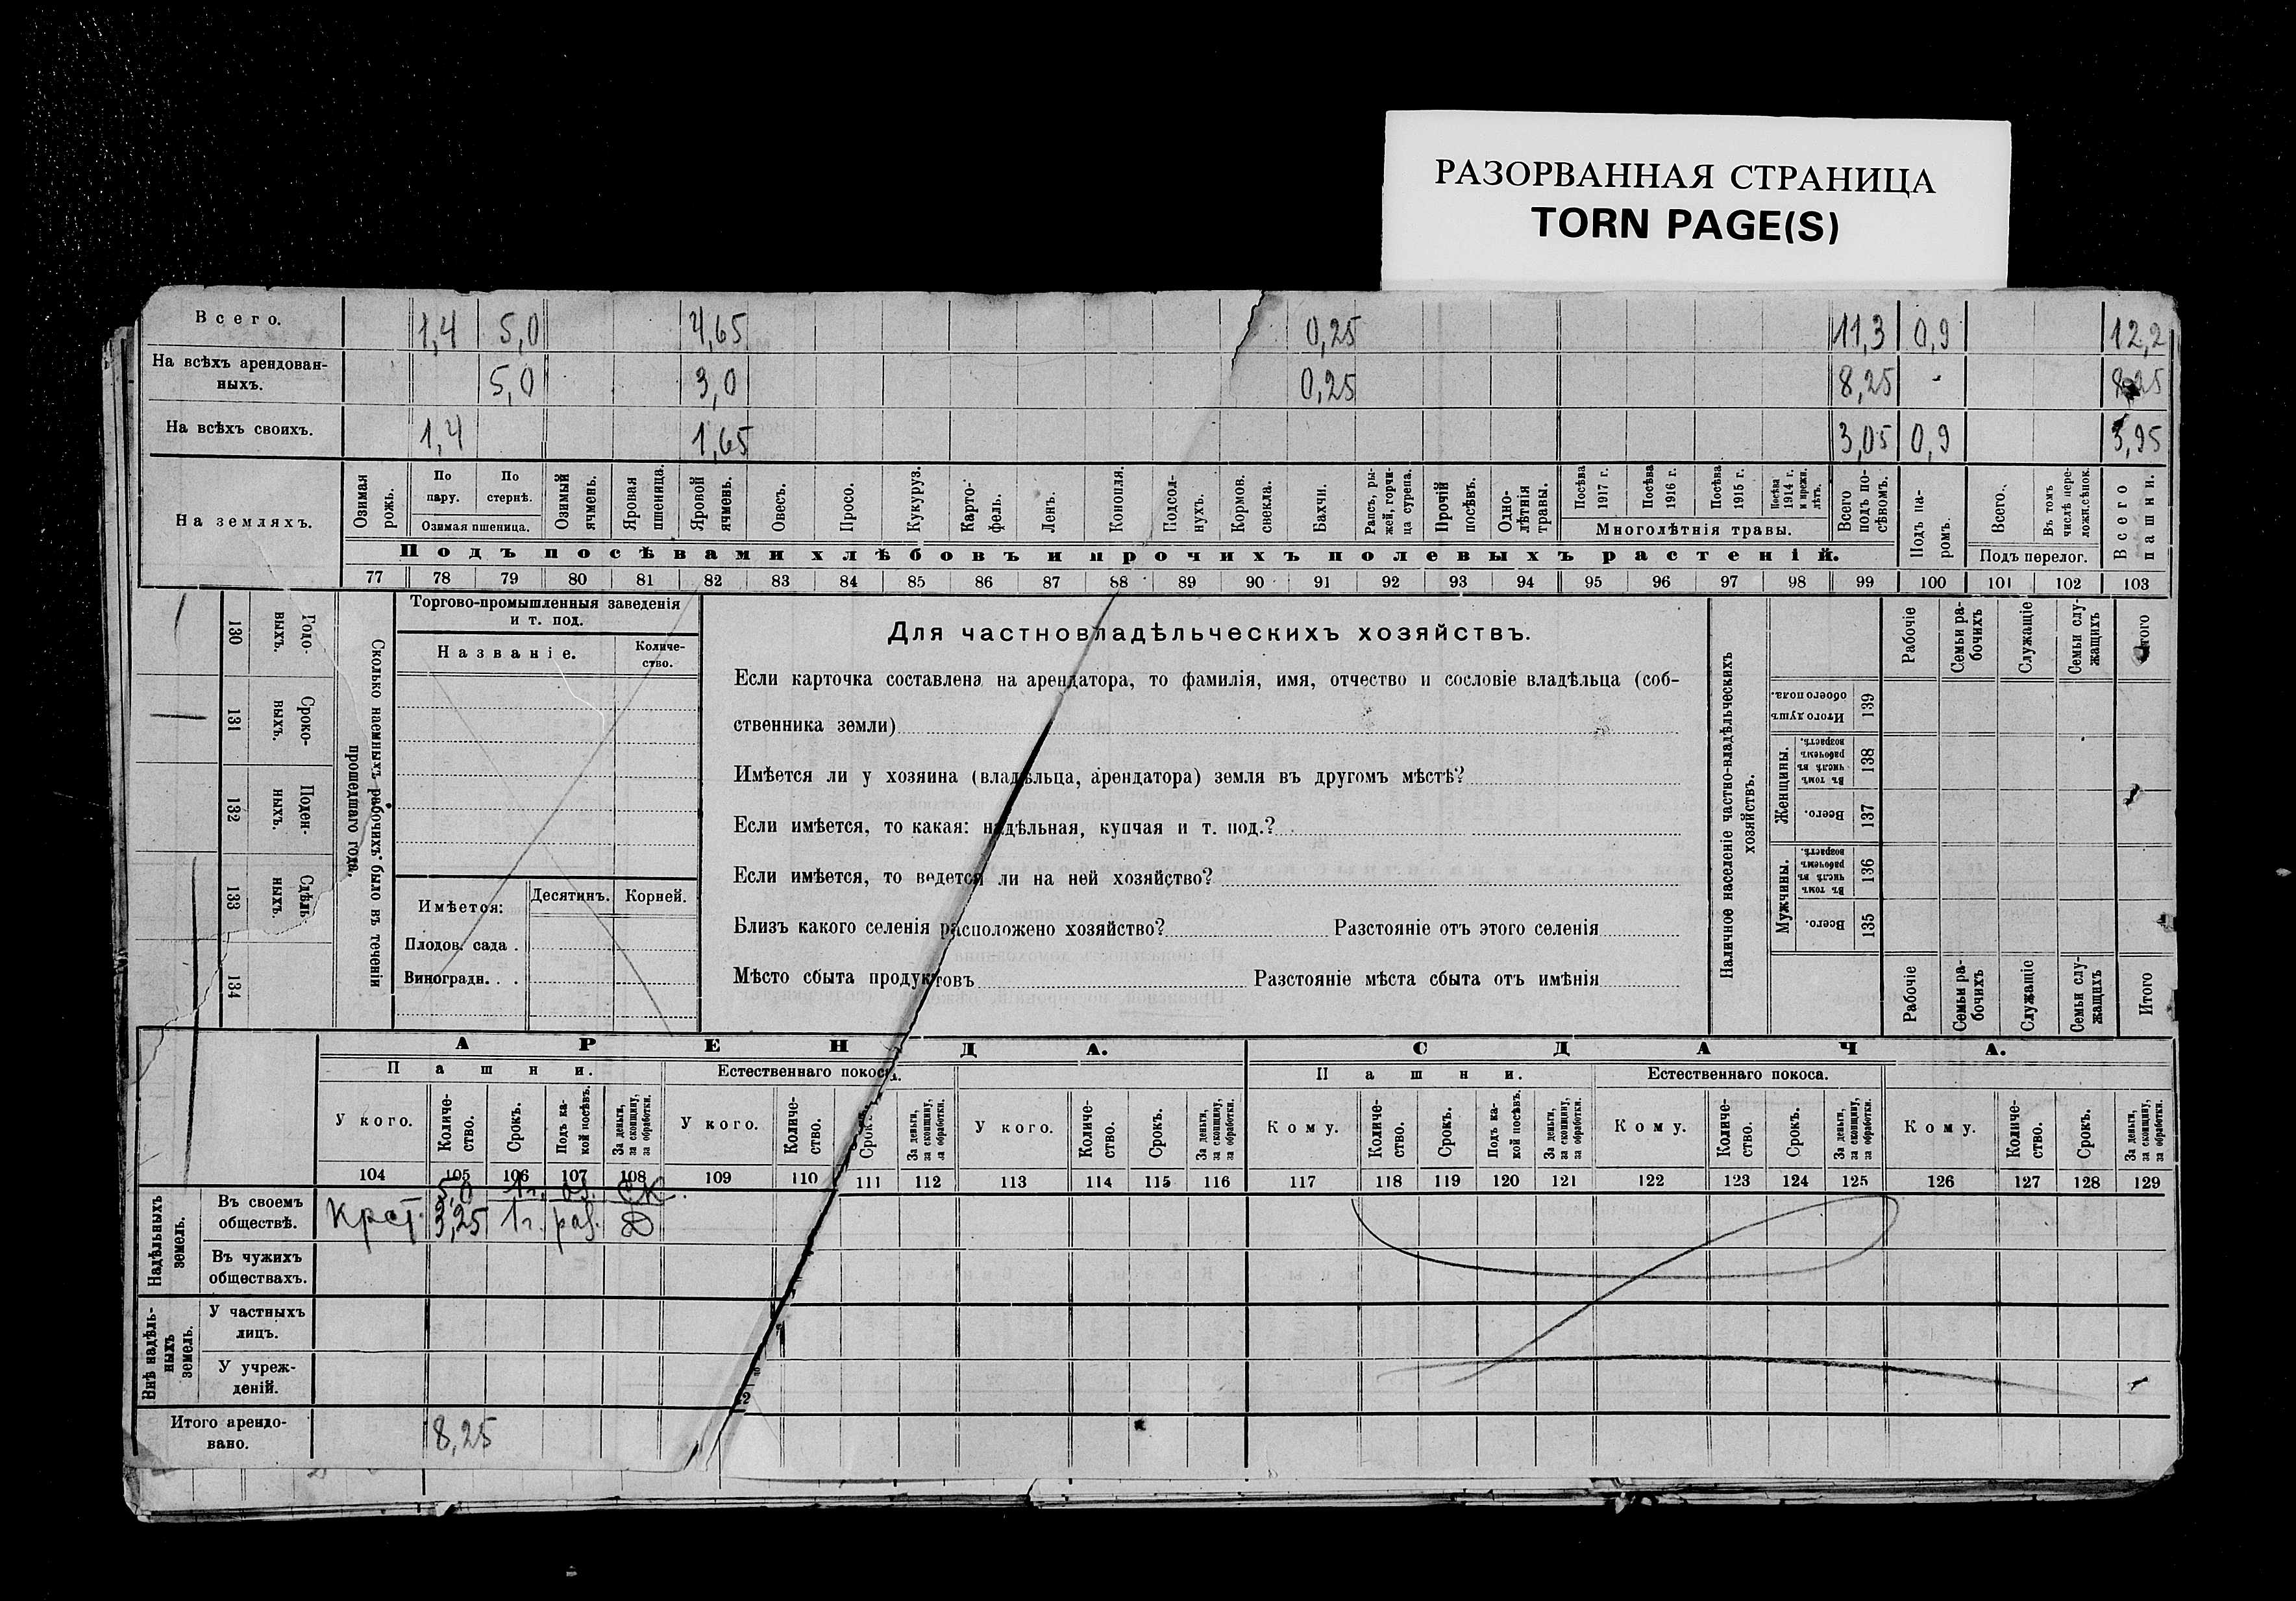 РАЗОРВАННАЯ СТРАНИЦА
TORN PAGE(S)
Всего. 1,4 5,0 4,65 0,25 11,3 0,9 12,2
На всѣхъ арендован-
ныхъ. 5,0 3,0 0,25 8,25 - 8,25
На всѣхъ своихъ. 1,4 1,65 3,05 0,9 3,95
На земляхъ.
Озимая рожь.
По пару.
По стернѣ.
Озимая пшеница.
Озимый ячмень.
Яровая пшеница.
Яровой ячмень.
Овесъ.
Просо.
Кукуруз.
Карто-
фель.
Ленъ.
Конопля.
Подсол-
нухъ.
Кормов. свекла.
Бахчи.
Рапсъ, ры-
жей, горчи-
ца сурепа.
Прочій посѣвъ.
Одно-
лѣтнія травы.
Посѣва 1917 г.
Посѣва 1916 г.
Посѣва 1915 г.
Посѣва 1914 г. и прежн. лѣтъ.
Многолѣтнія травы.
Всего подъ по-
сѣвомъ.
Подъ па-
ромъ.
Всего.
Въ томъ числѣ пере-
ложн.сѣнок.
Подъ перелог.
Всего пашни.
Подъ посѣвами хлѣбовъ и прочихъ полевыхъ растеній.
77 78 79 80 81 82 83 84 85 86 87 88 89 90 91 92 93 94 95 96 97 98 99 100 101 102 103
130 Годо-
выхъ.
131 Сроко-
выхъ.
132 Поден-
ныхъ.
133 Сдѣль-
ныхъ.
134
Сколько наемныхъ рабочихъ было въ теченіи
прошедшаго года.
Торгово-промышленныя заведенія
и т. под.
Названіе.
Количе-
ство.
Имѣется:
Десятинъ.
Корней.
Плодов. сада .
Виноградн. . .
Для частновладѣльческихъ хозяйствъ.
Если карточка составлена на арендатора, то фамилія, имя, отчество и сословіе владѣльца (соб-
ственника земли)
Имѣется ли у хозяина (владѣльца, арендатора) земля въ другомъ мѣстѣ?
Если имѣется, то какая: надѣльная, купчая и т. под.?
Если имѣется, то ведется ли на ней хозяйство?
Близъ какого селенія расположено хозяйство? Разстояніе отъ этого селенія
Мѣсто сбыта продуктовъ Разстояніе мѣста сбыта отъ имѣнія
Наличное населеніе частно-владѣльческихъ
хозяйствъ.
Рабочіе
Семьи ра-
бочихъ
Служащіе
Семьи слу-
жащихъ
Итого
139 Итого душъ обоего пола.
Женщины.
138 Въ томъ числѣ въ рабочемъ возрастѣ.
137 Всего.
Мужчины.
136 Въ томъ числѣ въ рабочемъ возрастѣ.
135 Всего.
Рабочіе
Семьи ра-
бочихъ
Служащіе
Семьи слу-
жащихъ
Итого
АРЕНДА.
СДАЧА.
Пашни.
Естественнаго покоса.
Пашни.
Естественнаго покоса.
У кого.
Количе-
ство.
Срокъ.
Подъ ка-
кой посѣвъ.
За деньги, за скопщину, за обработки.
У кого.
Количе-
ство.
Срокъ.
За деньги, за скопщину, за обработки.
У кого.
Количе-
ство.
Срокъ.
За деньги, за скопщину, за обработки.
Кому.
Количе-
ство.
Срокъ.
Подъ ка-
кой посѣвъ.
За деньги, за скопщину, за обработки.
Кому.
Количе-
ство.
Срокъ.
За деньги, за скопщину, за обработки.
Кому.
Количе-
ство.
Срокъ.
За деньги, за скопщину, за обработки.
104 105 106 107 108 109 110 111 112 113 114 115 116 117 118 119 120 121 122 123 124 125 126 127 128 129
Надѣльныхъ земель.
5,0 1г. оз. СК.
Въ своемъ
обществѣ. Крст. 3,25 1г. раз. Д
Въ чужихъ
обществахъ.
Внѣ надѣль-
ныхъ земель.
У частныхъ
лицъ.
У учреж-
деній.
Итого арендо-
вано. 8,25